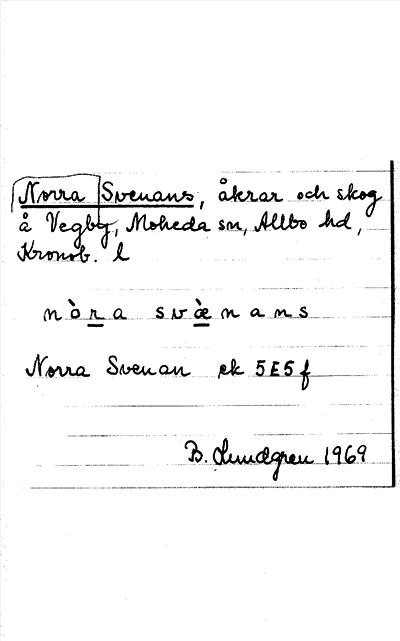 Norra Svenans, åkrar och skog
å Vegby, Moheda sn, Allbo hd,
Kronob. l
nòra svæ̀nans
Norra Svenan ek 5E5f
B. Lundgren 1969